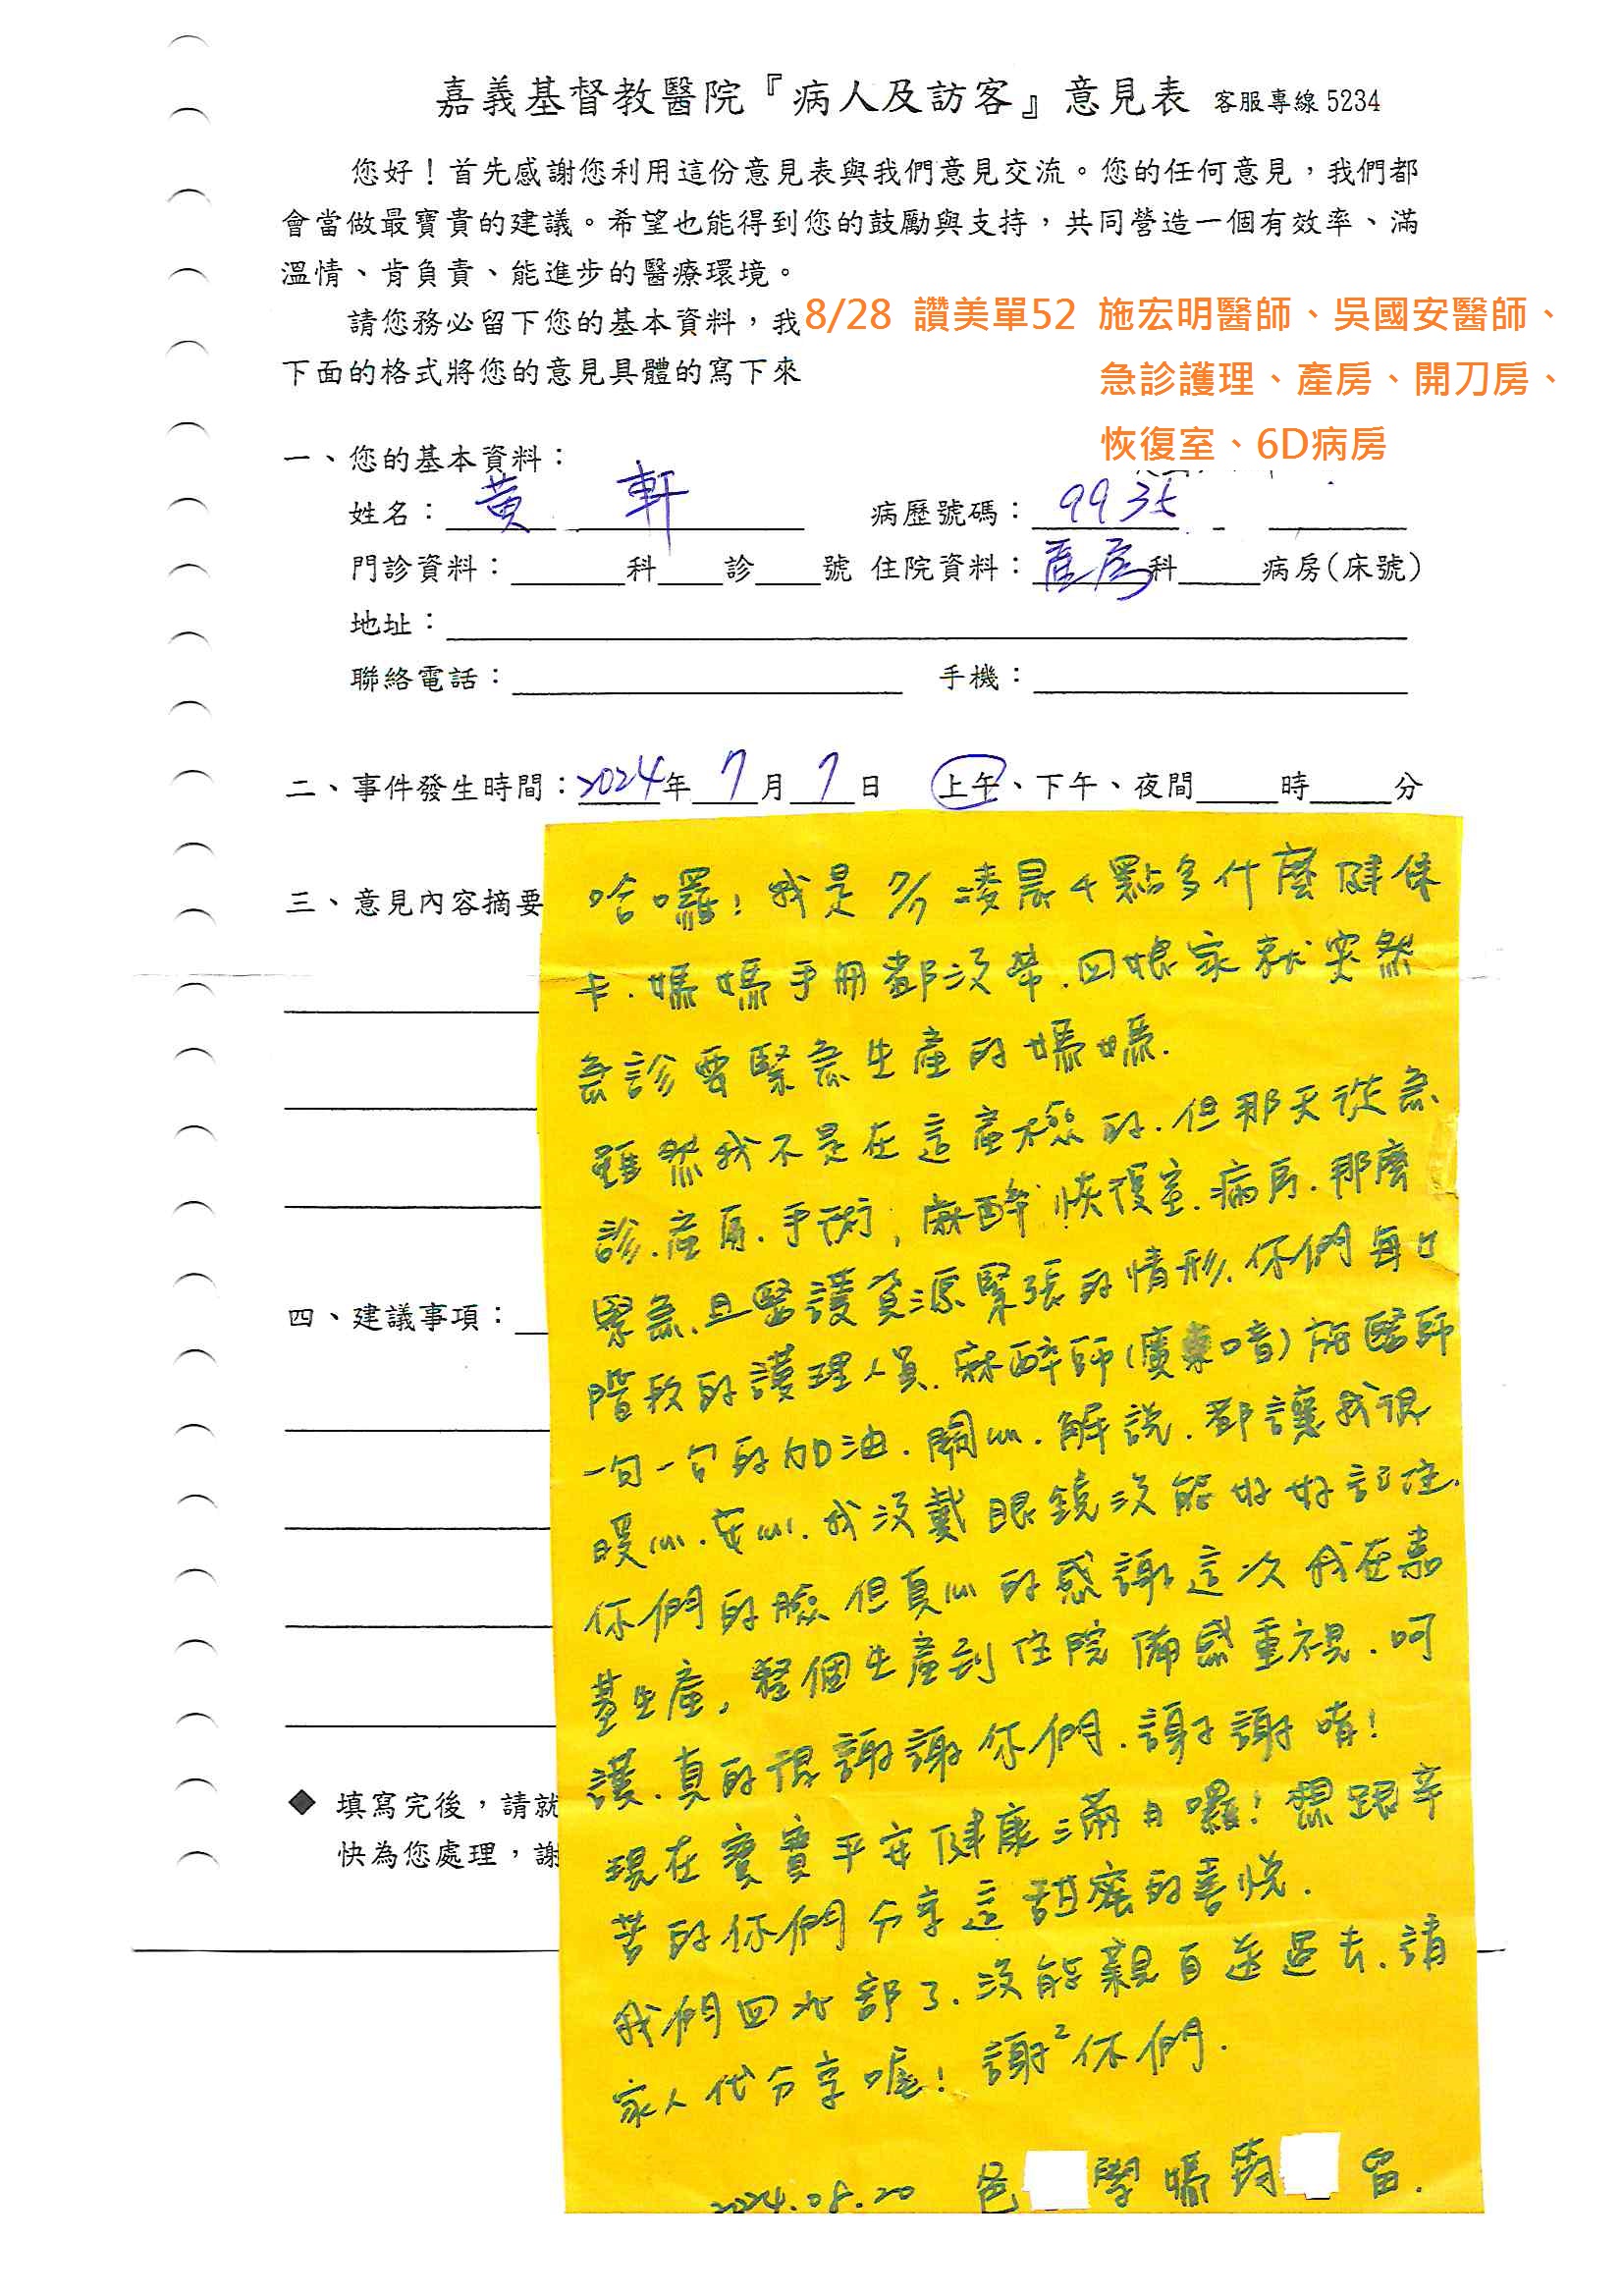 嘉義基督教醫院『病人及訪客』意見表 客服專線5234
您好！首先感謝您利用這份意見表與我們意見交流。您的任何意見，我們都
會當做最寶貴的建議。希望也能得到您的鼓勵與支持，共同營造一個有效率、滿
溫情、肯負責、能進步的醫療環境。
請您務必留下您的基本資料，我
下面的格式將您的意見具體的寫下來
8/28 讚美單52 施宏明醫師、吳國安醫師、
急診護理、產房、開刀房、
恢復室、6D病房
一、您的基本資料：
姓名：黃 軒 病歷號碼：9935
門診資料：科診號 住院資料：產房科病房(床號)
地址：
聯絡電話： 手機：
二、事件發生時間：2024年7月7日 上午、下午、夜間時分
三、意見內容摘要
四、建議事項：
◆ 填寫完後，請就
快為您處理，謝
哈囉！我是7/7凌晨4點多什麼健保
卡.媽媽手冊都沒帶.回娘家就突然
急診要緊急生產的媽媽.
雖然我不是在這產檢的.但那天從急
診.產房.手術,麻醉 恢復室.病房.那麼
緊急.且醫護資源緊張的情形.你們每個
階段的護理人員.麻醉師(廣東口音)施醫師
一句一句的加油.關心.解說.都讓我很
暖心.安心.我沒戴眼鏡沒能好好記住.
你們的臉但真心的感謝這次我在嘉
基生產,整個生產到住院備感重視.呵
護.真的很謝謝你們.謝謝唷！
現在寶寶平安健康滿月囉！想跟辛
苦的你們分享這甜蜜的喜悅.
我們回北部了.沒能親自送過去.請
家人代分享喔！謝²你們.
2024.08.20 爸 學媽筠 留.